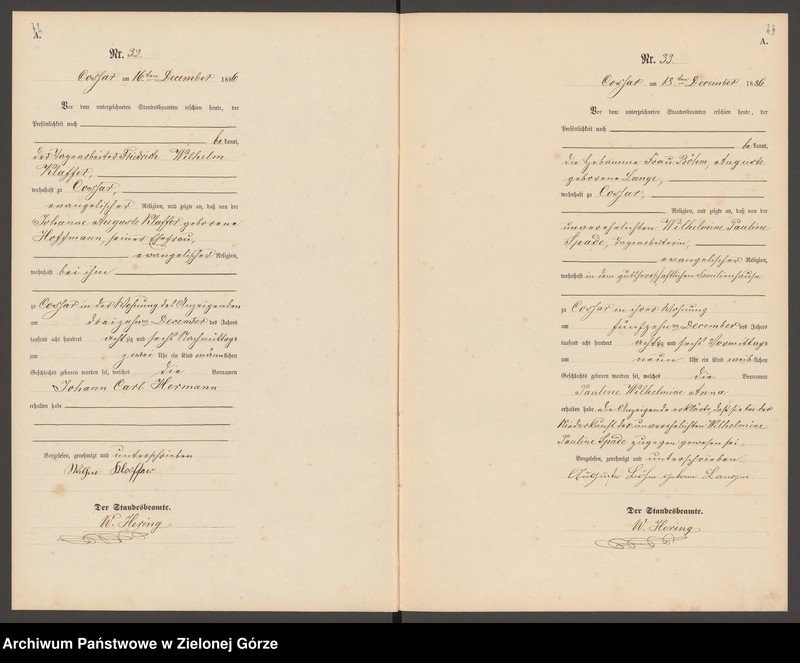 A.
Nr. 32.
Cossar am 16ten December 1886
Vor dem unterzeichneten Standesbeamten erschien heute, der
Persönlichkeit nach
bekannt,
der Tagearbeiter Friedrich Wilhelm
Klaffer,
wohnhaft zu Cossar,
evangelischer Religion, und zeigte an, daß von der
Johanne Auguste Klaffer geborene
Hoffmann, seiner Ehefrau,
evangelischer Religion,
wohnhaft bei ihm
zu Cossar in der Wohnung des Anzeigenden
am dreizehnten December des Jahres
tausend acht hundert achtzig und sechs Nachmittags
um zwei Uhr ein Kind männlichen
Geschlechts geboren worden sei, welches die Vornamen
Johann Carl Hermann
erhalten habe
Vorgelesen, genehmigt und unterschrieben
Der Standesbeamte.
W. Hering
33
A.
Nr. 33.
Cossar am 18ten December 1886
Vor dem unterzeichneten Standesbeamten erschien heute, der
Persönlichkeit nach
bekannt,
die Hebamme Frau Böhm, Auguste
geborene Lange,
wohnhaft zu Cossar,
Religion, und zeigte an, daß von der
unverehelichten Wilhelmine Pauline
Spade, Tagearbeiterin,
evangelischer Religion,
wohnhaft in dem gutsherrschaftlichen Familienhause
zu Cossar in ihrer Wohnung
am fünfzehnten December des Jahres
tausend acht hundert achtzig und sechs Vormittags
um neun Uhr ein Kind weiblichen
Geschlechts geboren worden sei, welches die Vornamen
Pauline Wilhelmine Anna
erhalten habe. Die Anzeigende erklärte, daß sie bei der
Niederkunft der unverehelichten Wilhelmine
Pauline Spade zugegen gewesen sei.
Vorgelesen, genehmigt und unterschrieben
Auguste Böhm geborne Lange
Der Standesbeamte.
W. Hering
Archiwum Państwowe w Zielonej Górze